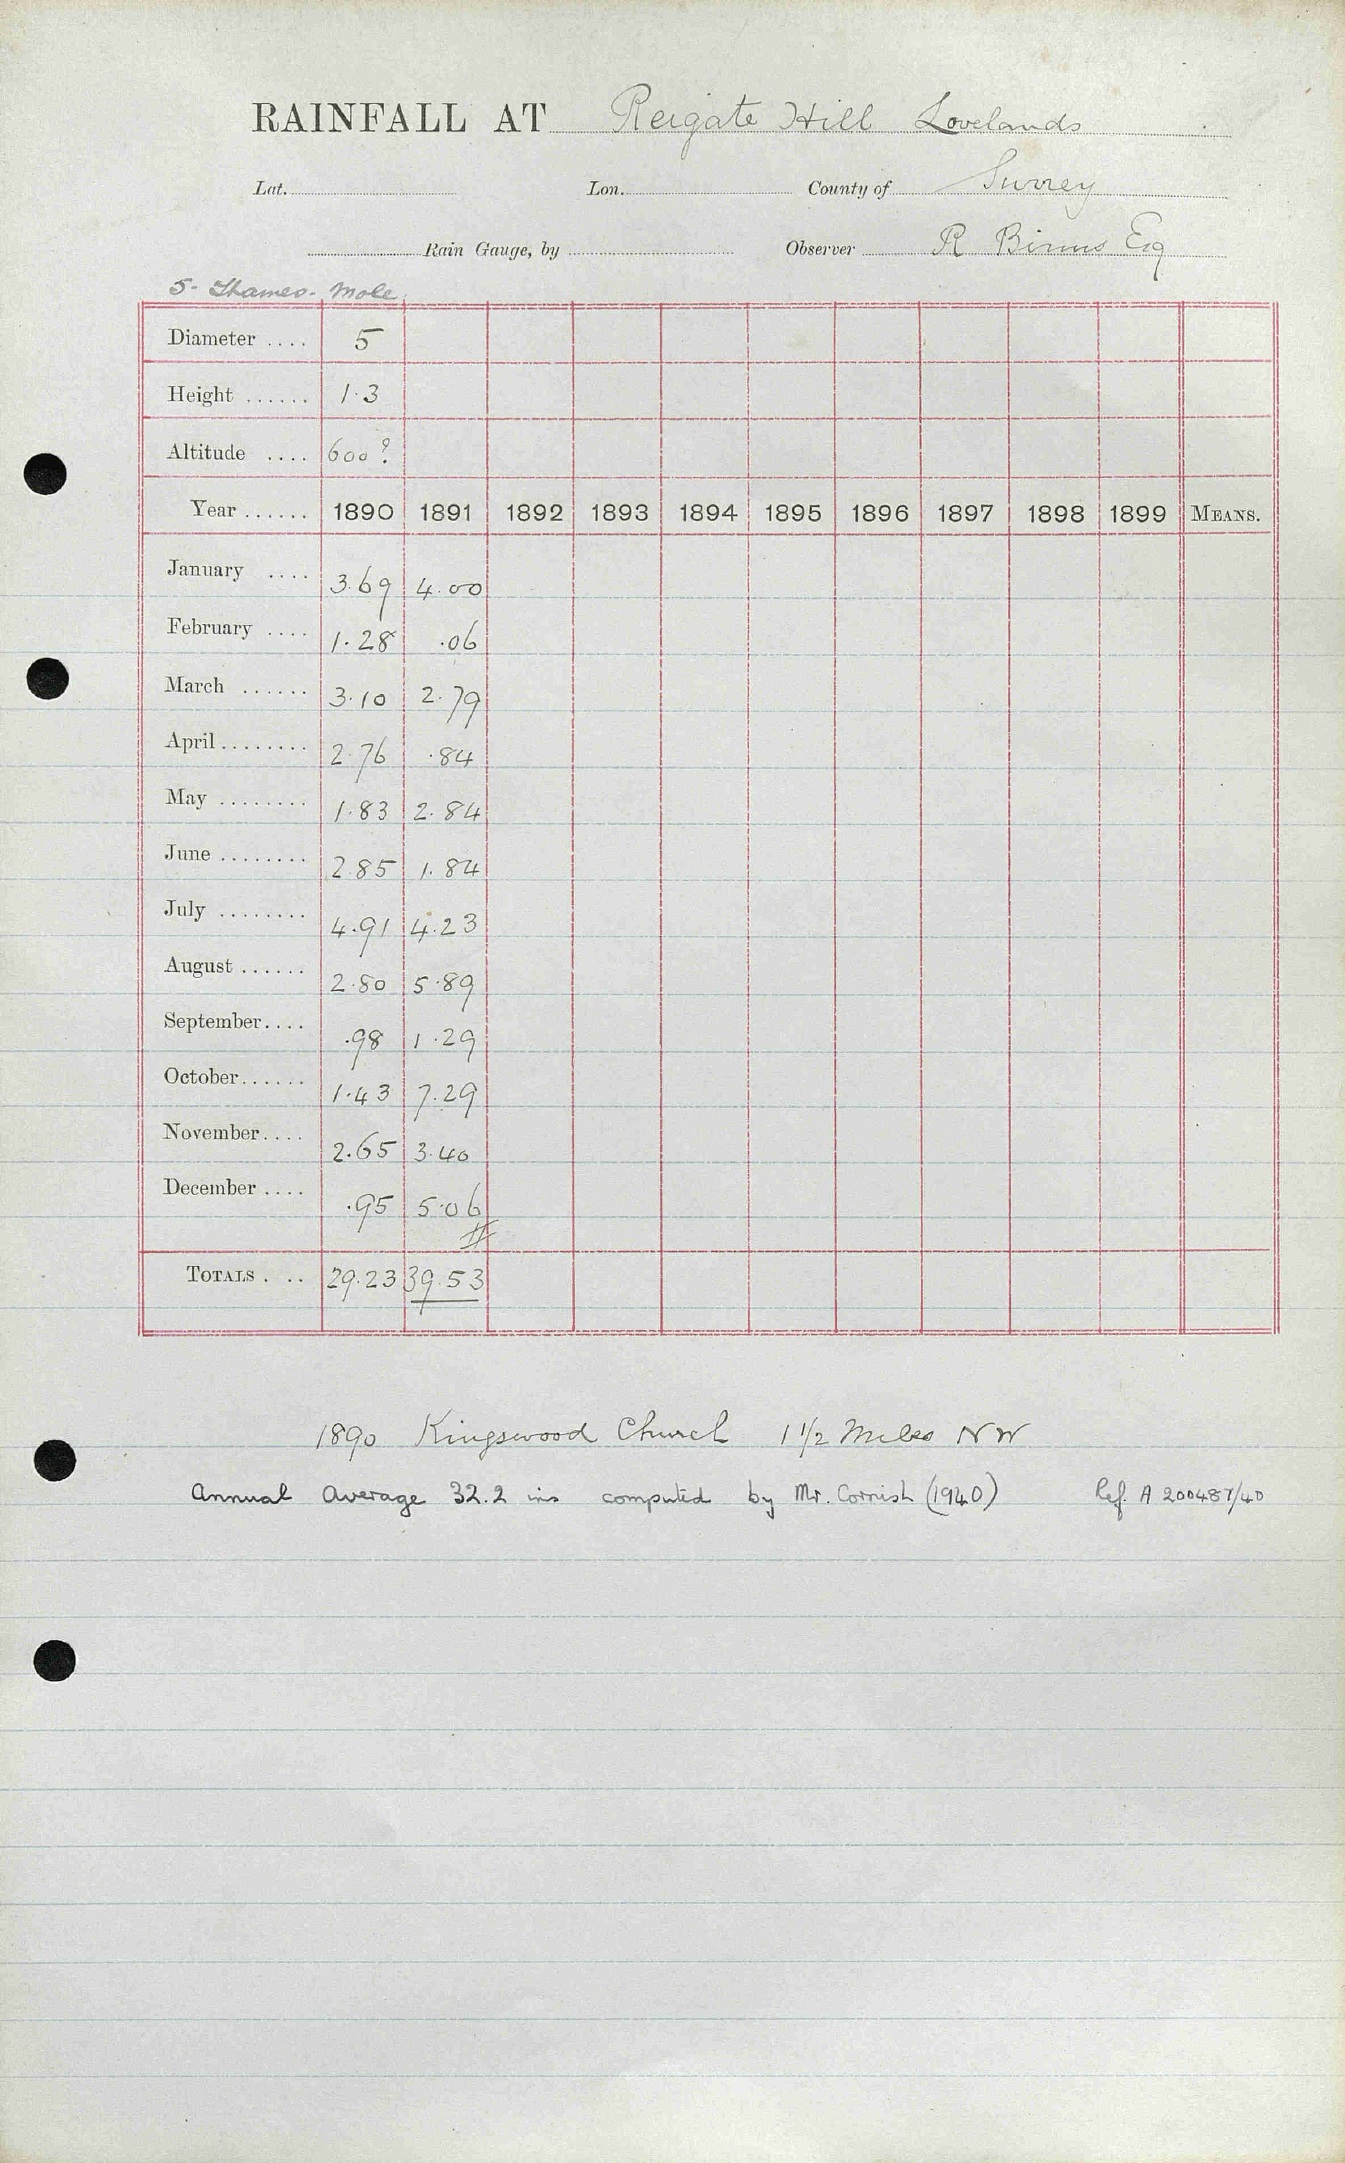 RAINFALL AT Reigate Hill Lovelands
Lat. Lon. County of Surrey
Rain Gauge, by Observer R Binns Esq
5- Thames. Mole.
Diameter .... 5
Height ...... 1.3
Altitude .... 600?
Year ...... 1890 1891 1892 1893 1894 1895 1896 1897 1898 1899 MEANS.
January .... 3.69 4.00
February .... 1.28 .06
March ...... 3.10 2.79
April ........ 2.76 .84
May ........ 1.83 2.84
June ........ 2.85 1.84
July ........ 4.91 4.23
August ...... 2.80 5.89
September.... .98 1.29
October...... 1.43 7.29
November.... 2.65 3.40
December .... .95 5.06
TOTALS . .. 29.23 39.53
1890 Kingswood Church 1 1/2 Miles NW
Annual average 32.2 ins computed by Mr. Cornish (1940) Ref. A 200487/40